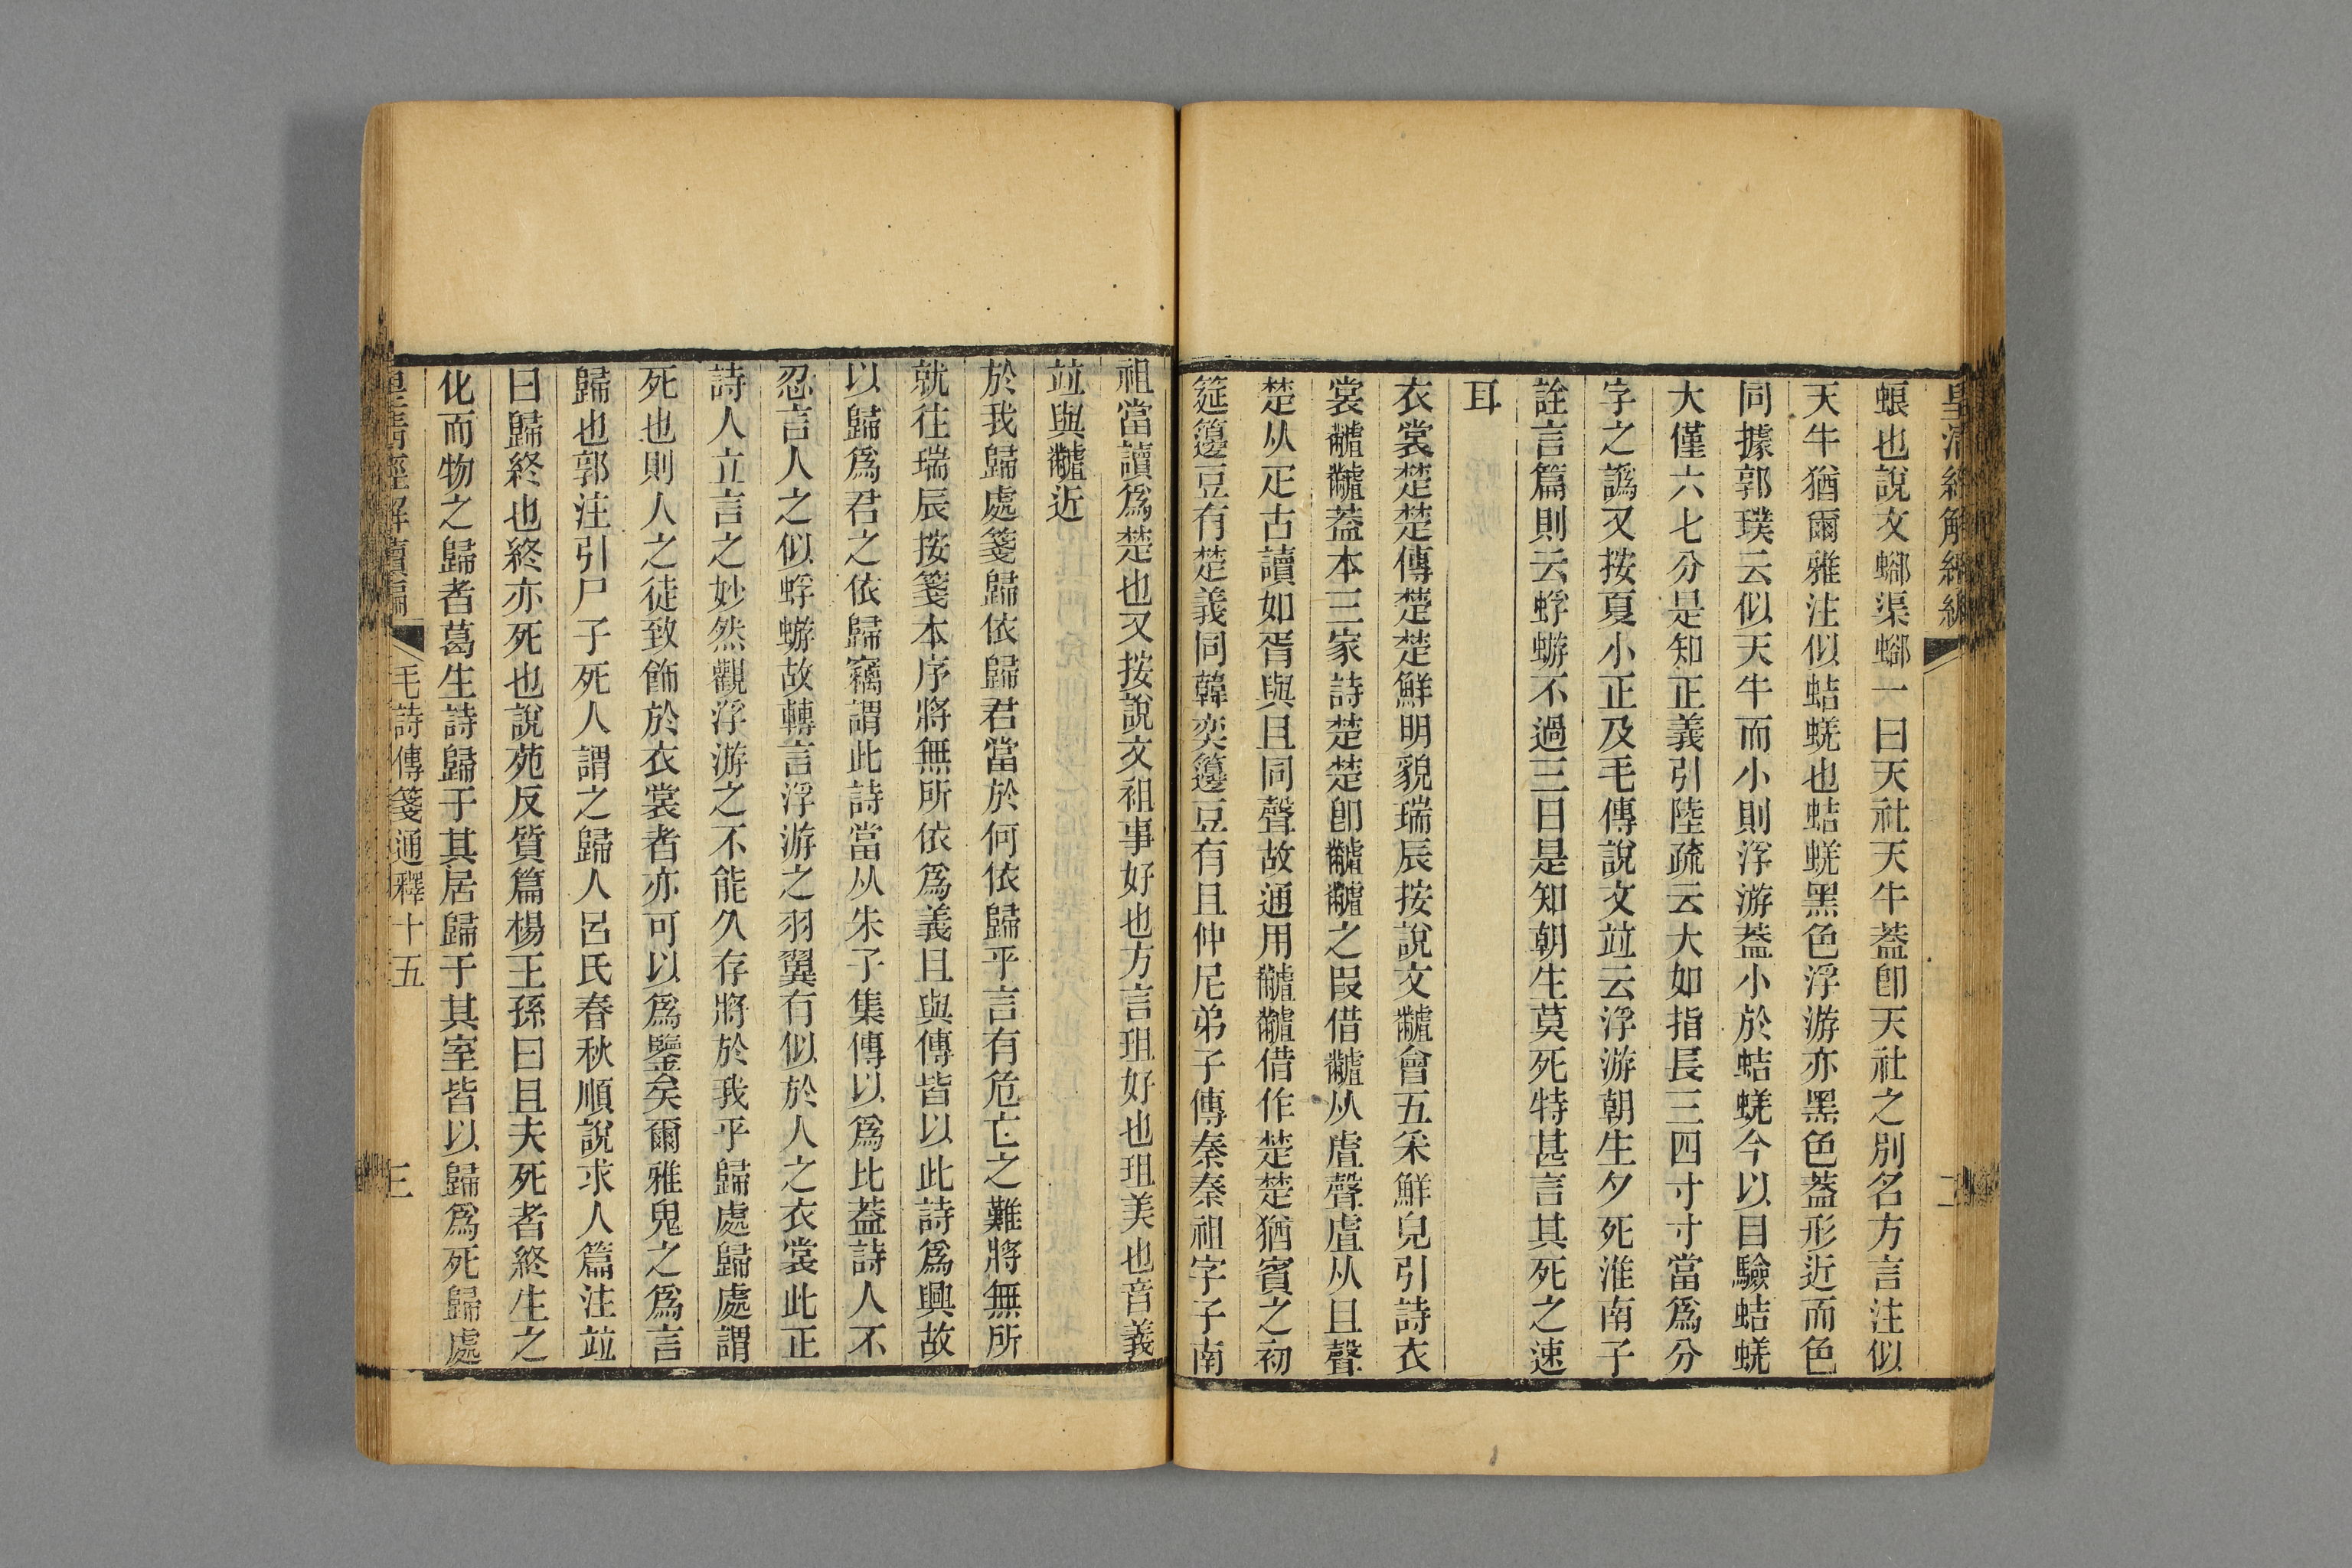 皇清經解續編
二
蜋也說文蝍渠蝍一曰天社天牛葢卽天社之別名方言注似
天牛猶爾雅注似蛣蜣也蛣蜣黑色浮游亦黑色葢形近而色
同據郭璞云似天牛而小則浮游葢小於蛣蜣今以目驗蛣蜣
大僅六七分是知正義引陸疏云大如指長三四寸寸當爲分
字之譌又按夏小正及毛傳說文竝云浮游朝生夕死淮南子
詮言篇則云蜉蝣不過三日是知朝生莫死特甚言其死之速
耳
衣裳楚楚傳楚楚鮮明貌瑞辰按說文䶥會五采鮮皃引詩衣
裳䶥䶥葢本三家詩楚楚卽䶥䶥之叚借䶥从虘聲虘从且聲
楚从疋古讀如胥與且同聲故通用䶥䶥借作楚楚猶賓之初
筵籩豆有楚義同韓奕籩豆有且仲尼弟子傳秦秦祖字子南
祖當讀爲楚也又按說文祖事好也方言珇好也珇美也音義
竝與䶥近
於我歸處箋歸依歸君當於何依歸乎言有危亡之難將無所
就往瑞辰按箋本序將無所依爲義且與傳皆以此詩爲興故
以歸爲君之依歸竊謂此詩當从朱子集傳以爲比葢詩人不
忍言人之似蜉蝣故轉言浮游之羽翼有似於人之衣裳此正
詩人立言之妙然觀浮游之不能久存將於我乎歸處歸處謂
死也則人之徒致飾於衣裳者亦可以爲鑒矣爾雅鬼之爲言
歸也郭注引尸子死人謂之歸人呂氏春秋順說求人篇注竝
曰歸終也終亦死也說苑反質篇楊王孫曰且夫死者終生之
化而物之歸者葛生詩歸于其居歸于其室皆以歸爲死歸處
皇淸經解續編
毛詩傳箋通釋十五
三